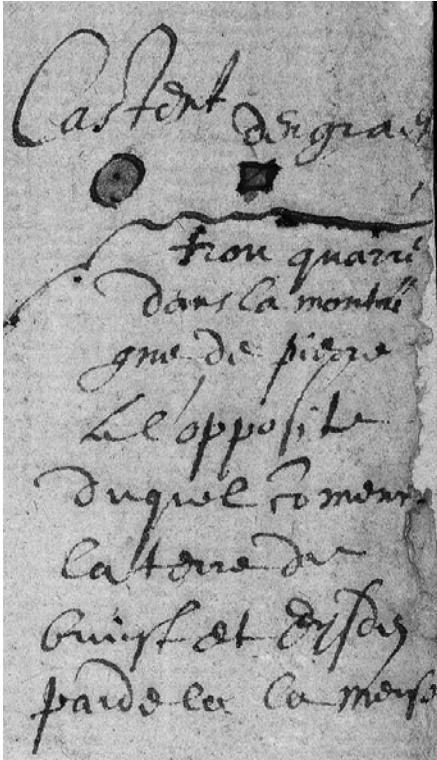 Castert
trou quarré
dans la monta
gne de pierre
a l'opposite
duquel comence
la terre de
bruist et Eijsden
par dela la meuse